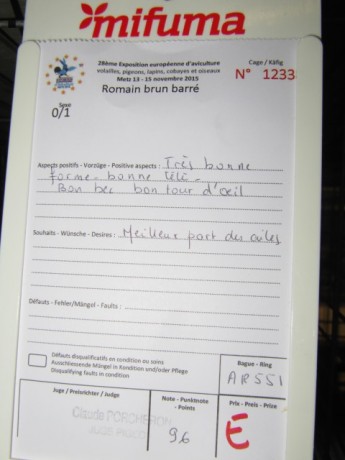 mifuma
28ème Exposition européenne d'aviculture
volailles, pigeons, lapins, cobayes et oiseaux
Metz 13 - 15 novembre 2015
Cage / Käfig
N° 1233
Romain brun barré
Sexe
0/1
Aspects positifs - Vorzüge - Positive aspects : Très bonne
forme - bonne tête -
Bon bec bon tour d'œil
Souhaits - Wünsche - Desires : Meilleur port des ailes
Défauts - Fehler/Mängel - Faults :
Défauts disqualificatifs en condition ou soins
Ausschliessende Mängel in Kondition und/oder Pflege
Disqualifying faults in condition
Bague - Ring
ARSSI
Juge / Preisrichter / Judge
Claude PORCHERON
Note - Punktnote - Points
96
Prix - Preis - Prize
E